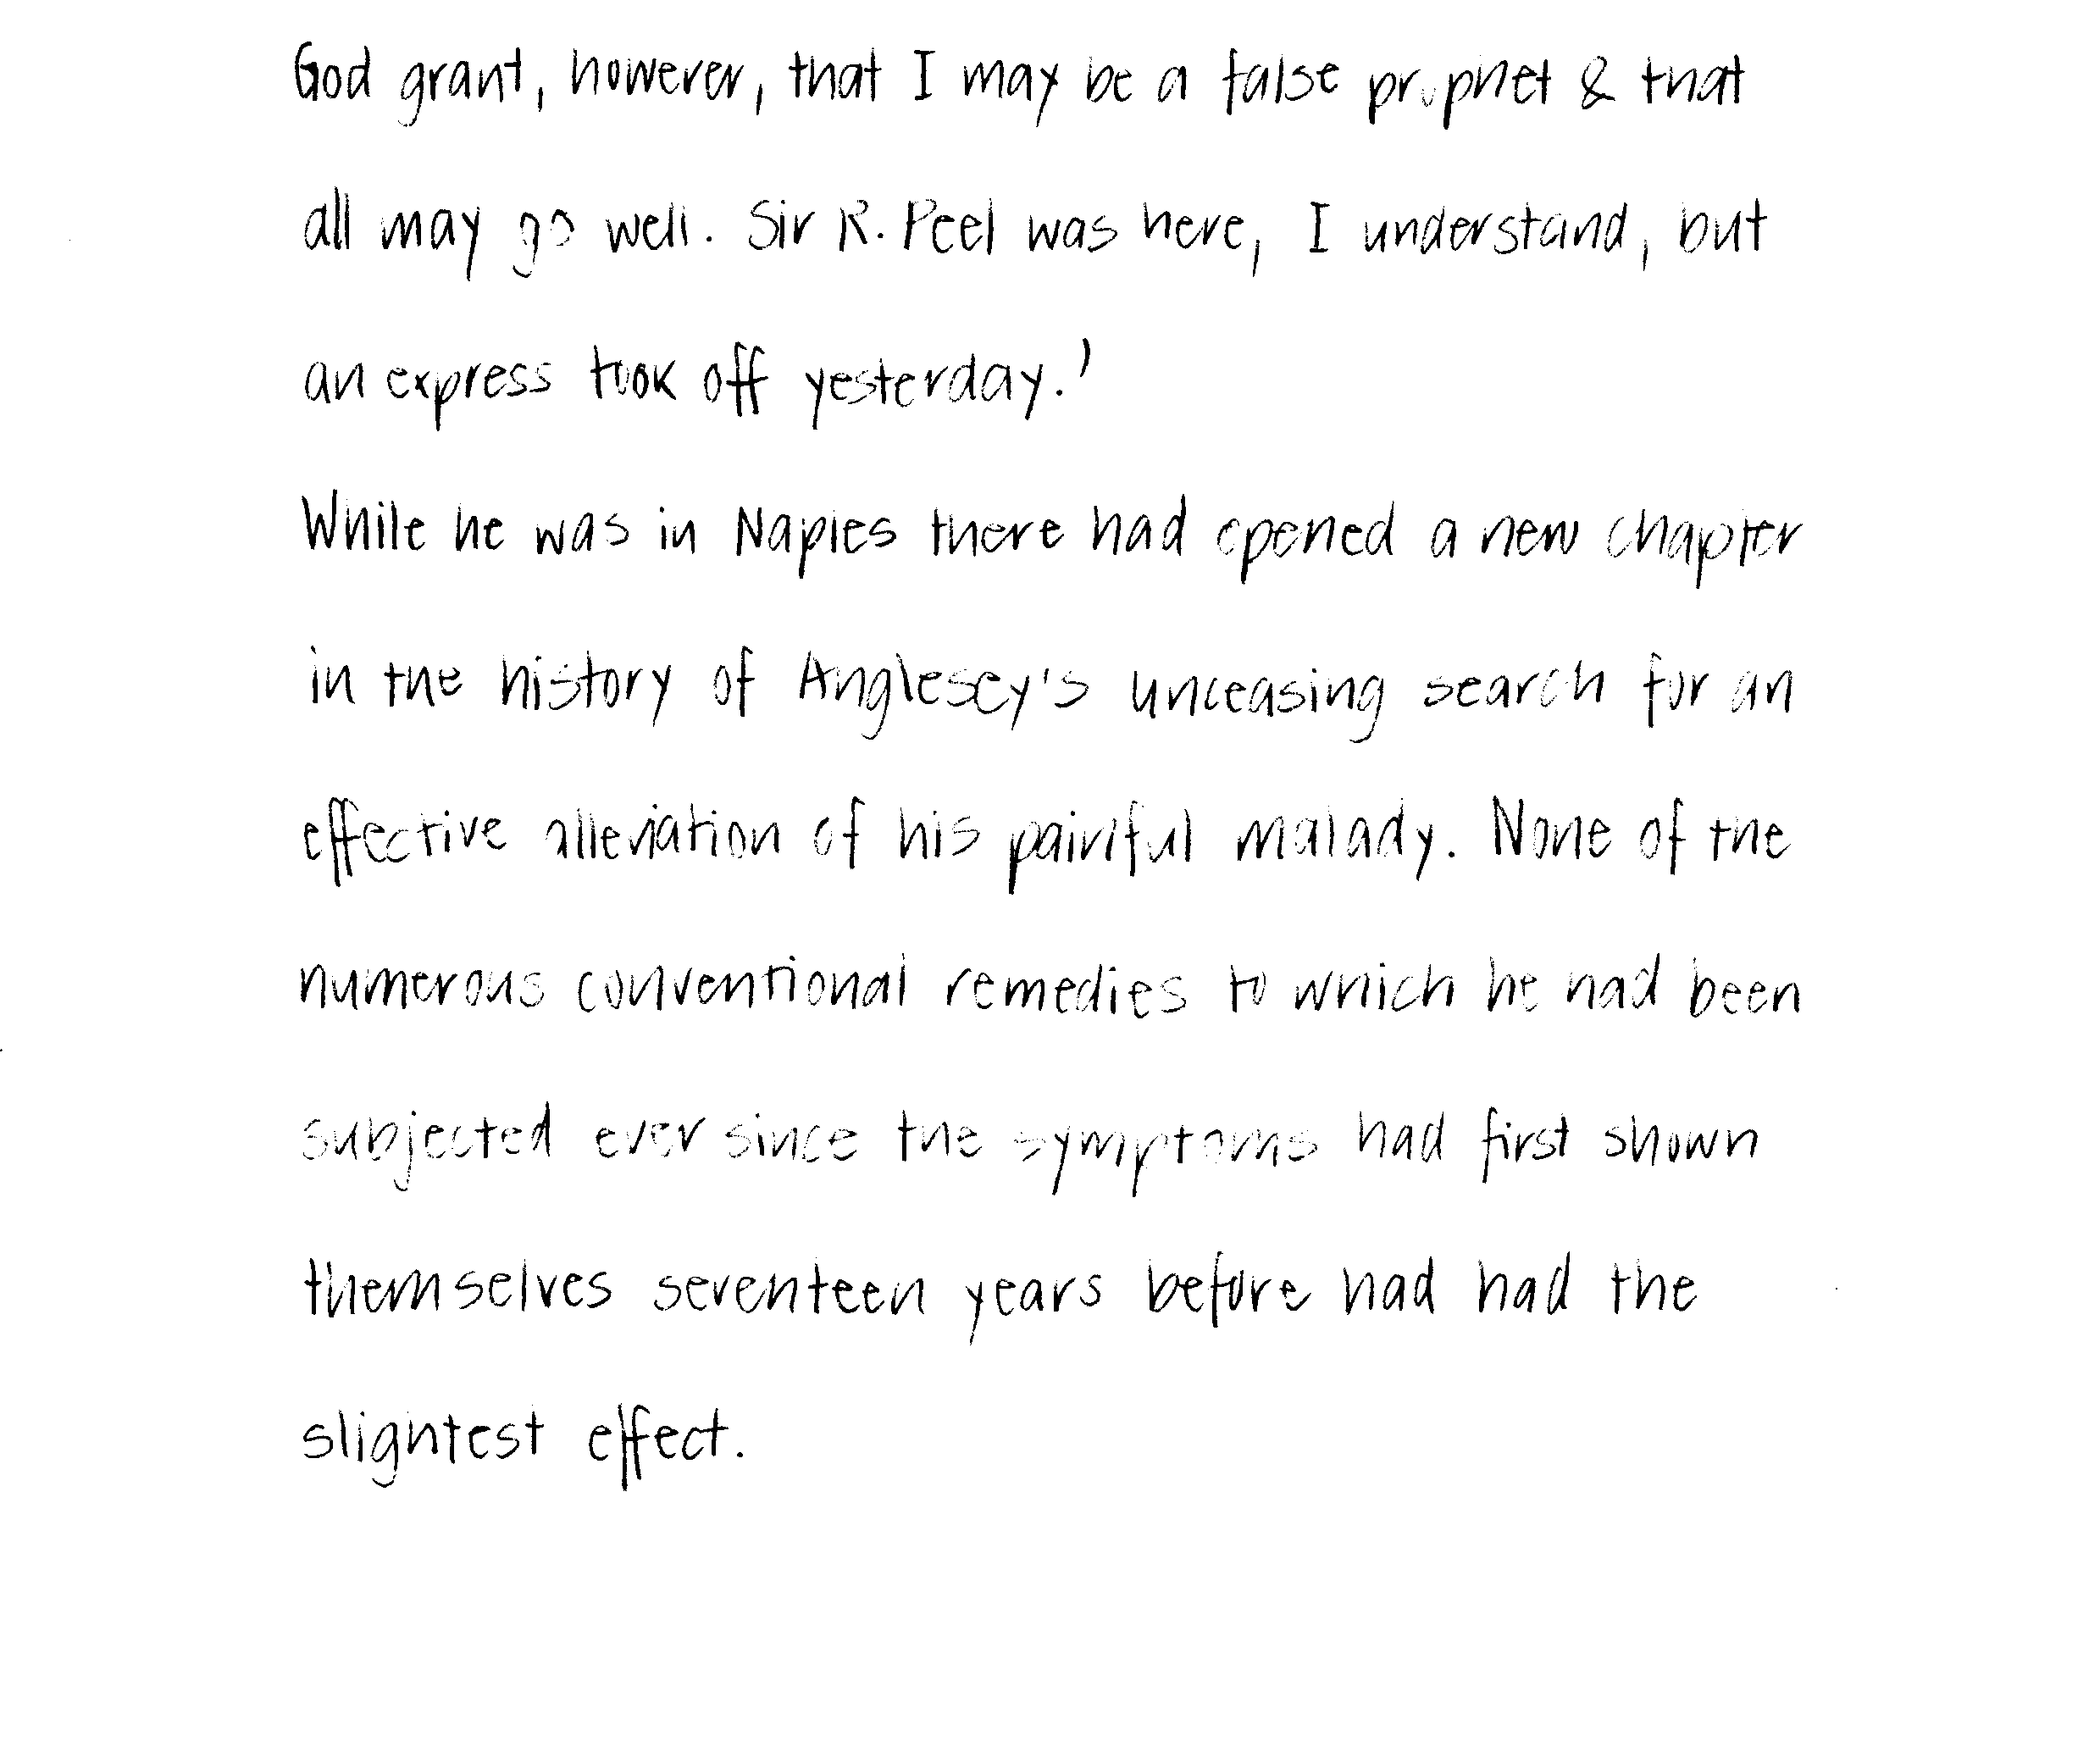 God grant, however, that I may be a false prophet & that
all may go well. Sir R. Peel was here, I understand, but
an express took off yesterday.'
While he was in Naples there had opened a new chapter
in the history of Anglesey's unceasing search for an
effective alleviation of his painful malady. None of the
numerous conventional remedies to which he had been
subjected ever since the symptoms had first shown
themselves seventeen years before had had the
slightest effect.